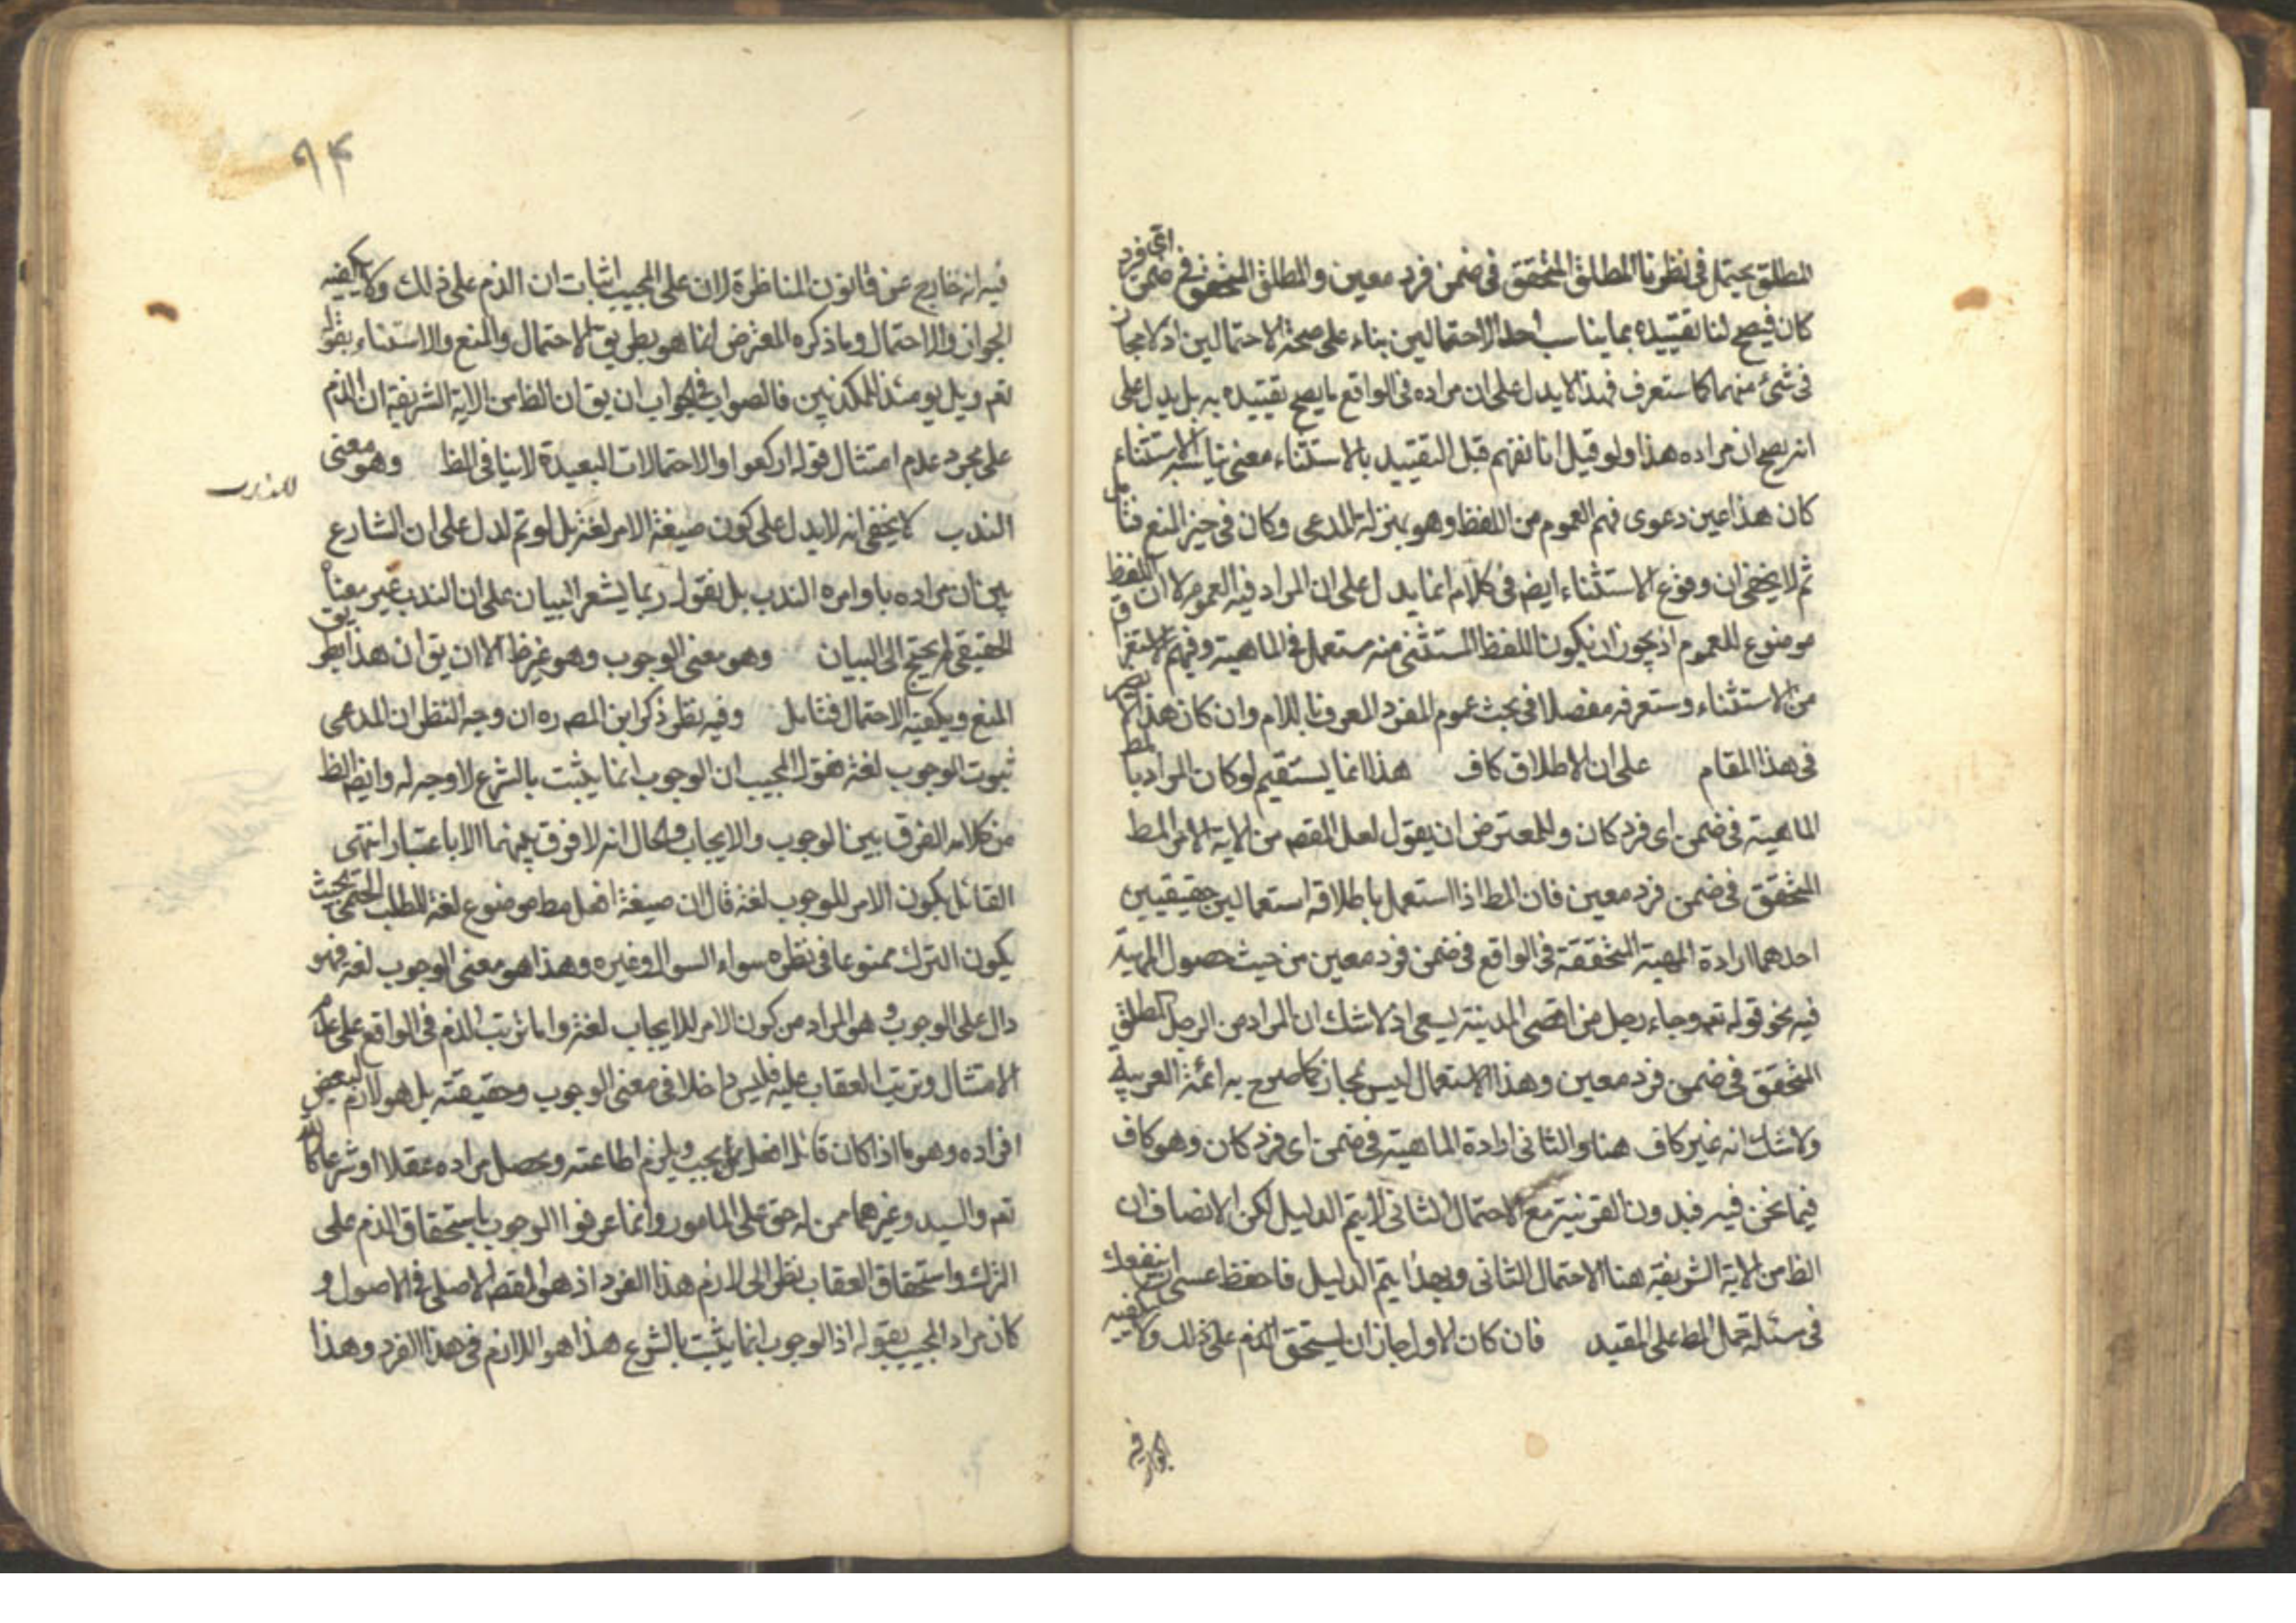 المطلق يحتمل في نظرنا المطلق المتحقق في ضمن فرد معين والمطلق المتحقق في ضمن اى فرد
كان فيصح لنا تقييده بما يناسب احد الاحتمالين بناء على صحة الاحتمالين اذ لا مجاز
فى شئ منهما كما ستعرف فهذا لا يدل على ان مراده فى الواقع ما يصح تقييده به بل يدل على
انه يصح ان مراده هذا ولو قيل انا نفهم قبل التقييد بالاستثناء معنى يناسبه الاستثناء
كان هذا عين دعوى فهم العموم من اللفظ وهو بمنزلة المدعى وكان فى حيز المنع فتأمل
ثم لا يخفى ان وقوع الاستثناء ايض فى كلام انما يدل على ان المراد فيه العموم لا ان اللفظ
موضوع للعموم اذ يجوز ان يكون اللفظ المستثنى منه مستعمل فى الماهية وفهم الاستغراق
من الاستثناء وستعرفه مفصلا فى بحث عموم المفرد المعرف باللام وان كان هذا
فى هذا المقام على ان الاطلاق كاف هذا انما يستقيم لو كان المراد بالمط
الماهية فى ضمن اى فرد كان وللمعترض ان يقول لعل المقصد من الاية الامر المط
المتحقق فى ضمن فرد معين فان المط اذا استعمل باطلاقه استعمالين حقيقيين
احدهما ارادة المهية المتحققة فى الواقع فى ضمن فرد معين من حيث حصول المهية
فيه نحو قوله تعم وجاء رجل من اقصى المدينة يسعى اذ لا شك ان المراد من الرجل المطلق
المتحقق فى ضمن فرد معين وهذا الاستعمال ليس بمجاز كما صرح به ائمة العربية
ولا شك انه غير كاف هنا والثانى ارادة الماهية فى ضمن اى فرد كان وهو كاف
فيما نحن فيه فبدون القرنية مع الاحتمال الثانى لا يتم الدليل لكن الانصاف ان
الظ من الاية الشريفة هنا الاحتمال الثانى وبهذا يتم الدليل فاحفظ عسى ان ينفعك
فى مسئلة حمل المط على المقيد فان كان الاول جاز ان يستحق الذم على ذلك ولا يكفيه
الجواز فيه
٩٤
فيه انه خارج عن قانون المناظرة لان على المجيب اثبات ان الذم على ذلك ولا يكفيه
الجواز والاحتمال وما ذكره المعترض انما هو بطريق الاحتمال والمنع والاستناد بقوله
تعم ويل يومئذ للمكذبين فالصواب فى الجواب ان يق ان الظ من الاية الشريفة ان الذم
على مجرد عدم امتثال قوله اركعوا والاحتمالات البعيدة لا ينافى الظ وهو معنى
الندب لا يخفى انه لا يدل على كون صيغة الامر لغة بل لو تم لدل على ان الشارع
للندب
بين ان مراده باوامره الندب بل نقول ربما يشعر البيان على ان الندب غير معناه
الحقيقى لم يحتج الى البيان وهو معنى الوجوب وهو غير ظ الا ان يق ان هذا بطريق
المنع ويكفيه الاحتمال فتامل وفيه نظر ذكر ابن المصره ان وجه النظر ان المدعى
ثبوت الوجوب لغة فقول المجيب ان الوجوب انما يثبت بالشرع لا وجه له وايض الظ
من كلامه الفرق بين الوجوب والايجاب والحال انه لا فرق بينهما الا باعتبار انتهى
القائل بكون الامر للوجوب لغة قال ان صيغة افعل مط موضوع لغة للطلب الحتمى بحيث
يكون الترك ممنوعا فى نظره سواء السوال وغيره وهذا هو معنى الوجوب لغة فهو
دال على الوجوب وهو المراد من كون الامر للايجاب لغة واما ترتب الذم فى الواقع على عدم
الامتثال وترتب العقاب عليه فليس داخلا فى معنى الوجوب وحقيقته بل هو لازم لبعض
افراده وهو ما اذا كان قائل افعل ممن يجب ويلزم اطاعته ويحصل مراده عقلا او شرعا كالله
تعم والسيد وغيرهما ممن له حق على المامور وانما عرفوا الوجوب باستحقاق الذم على
الترك واستحقاق العقاب نظرا الى لازم هذا الفرد اذ هو المقصد الاصلى فى الاصول و
كان مراد المجيب بقوله اذ الوجوب انما يثبت بالشرع هذا هو اللازم فى هذا الفرد وهذا